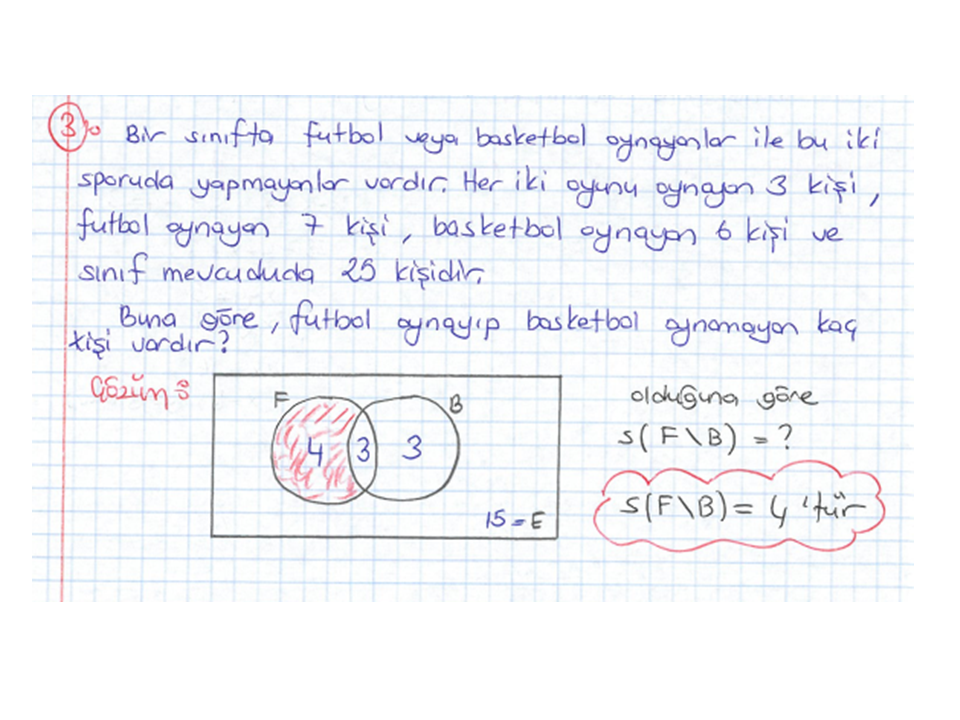 3) Bir sınıfta futbol veya basketbol oynayanlar ile bu iki
sporuda yapmayanlar vardır. Her iki oyunu oynayan 3 kişi,
futbol oynayan 7 kişi, basketbol oynayan 6 kişi ve
sınıf mevcududa 25 kişidir.
Buna göre, futbol oynayıp basketbol oynamayan kaç
kişi vardır?
Çözüm:
F B
4 3 3
15 = E
olduğuna göre
s(F\B) = ?
s(F\B) = 4 'tür